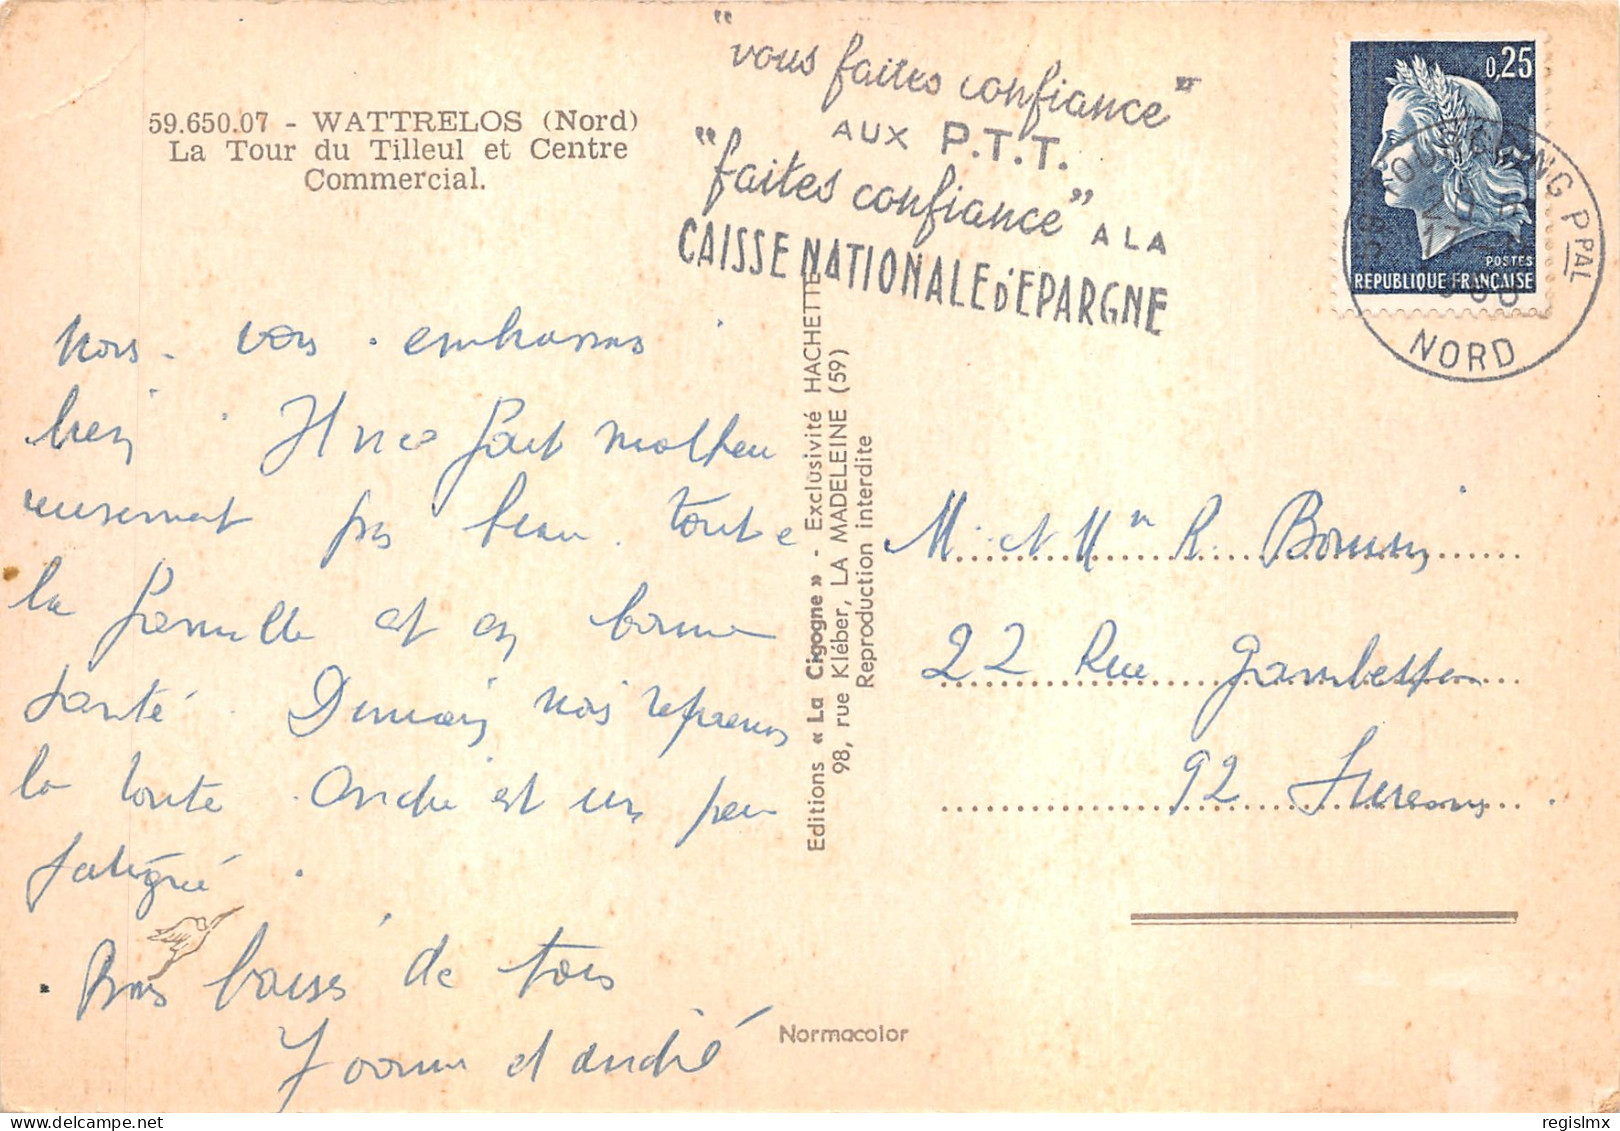 59.650.07 - WATTRELOS (Nord)
La Tour du Tilleul et Centre
Commercial.
"vous faites confiance"
AUX P.T.T.
"faites confiance" A LA
CAISSE NATIONALE d'EPARGNE
0,25
POSTES
REPUBLIQUE FRANÇAISE
TOURCOING PPAL
NORD
Nous vous embrassons
bien. Il ne fait malheu
reusement pas beau. toute
la famille est en bonne
santé. Demain nous reprenons
la route. André est un peu
fatigué.
Bons baisers de tous
Yvonne et André
Editions « La Cigogne » - Exclusivité HACHETTE
98, rue Kléber, LA MADELEINE (59)
Reproduction interdite
M. et Mme R.
22 Rue Gambetta
92 Suresnes.
Normacolor
regislmx